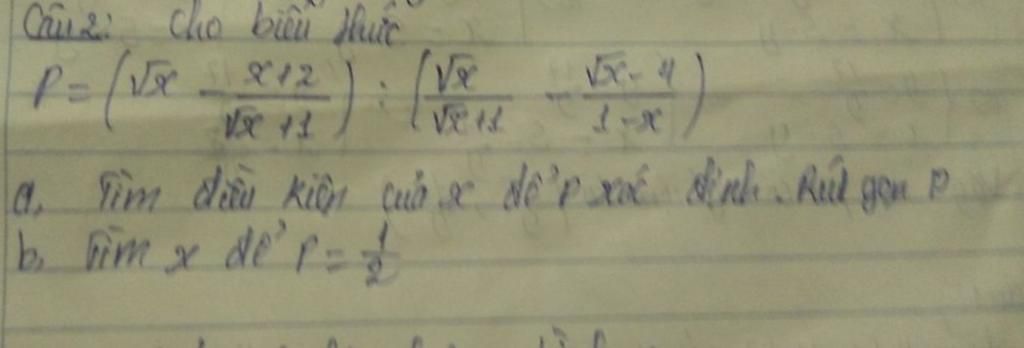 Câu 2: Cho biểu thức
P = (√x - x+2/√x+1) : (√x/√x+1 - √x-4/1-x)
a, Tìm điều kiện của x để P xác định. Rút gọn P
b, Tìm x để P = 1/2